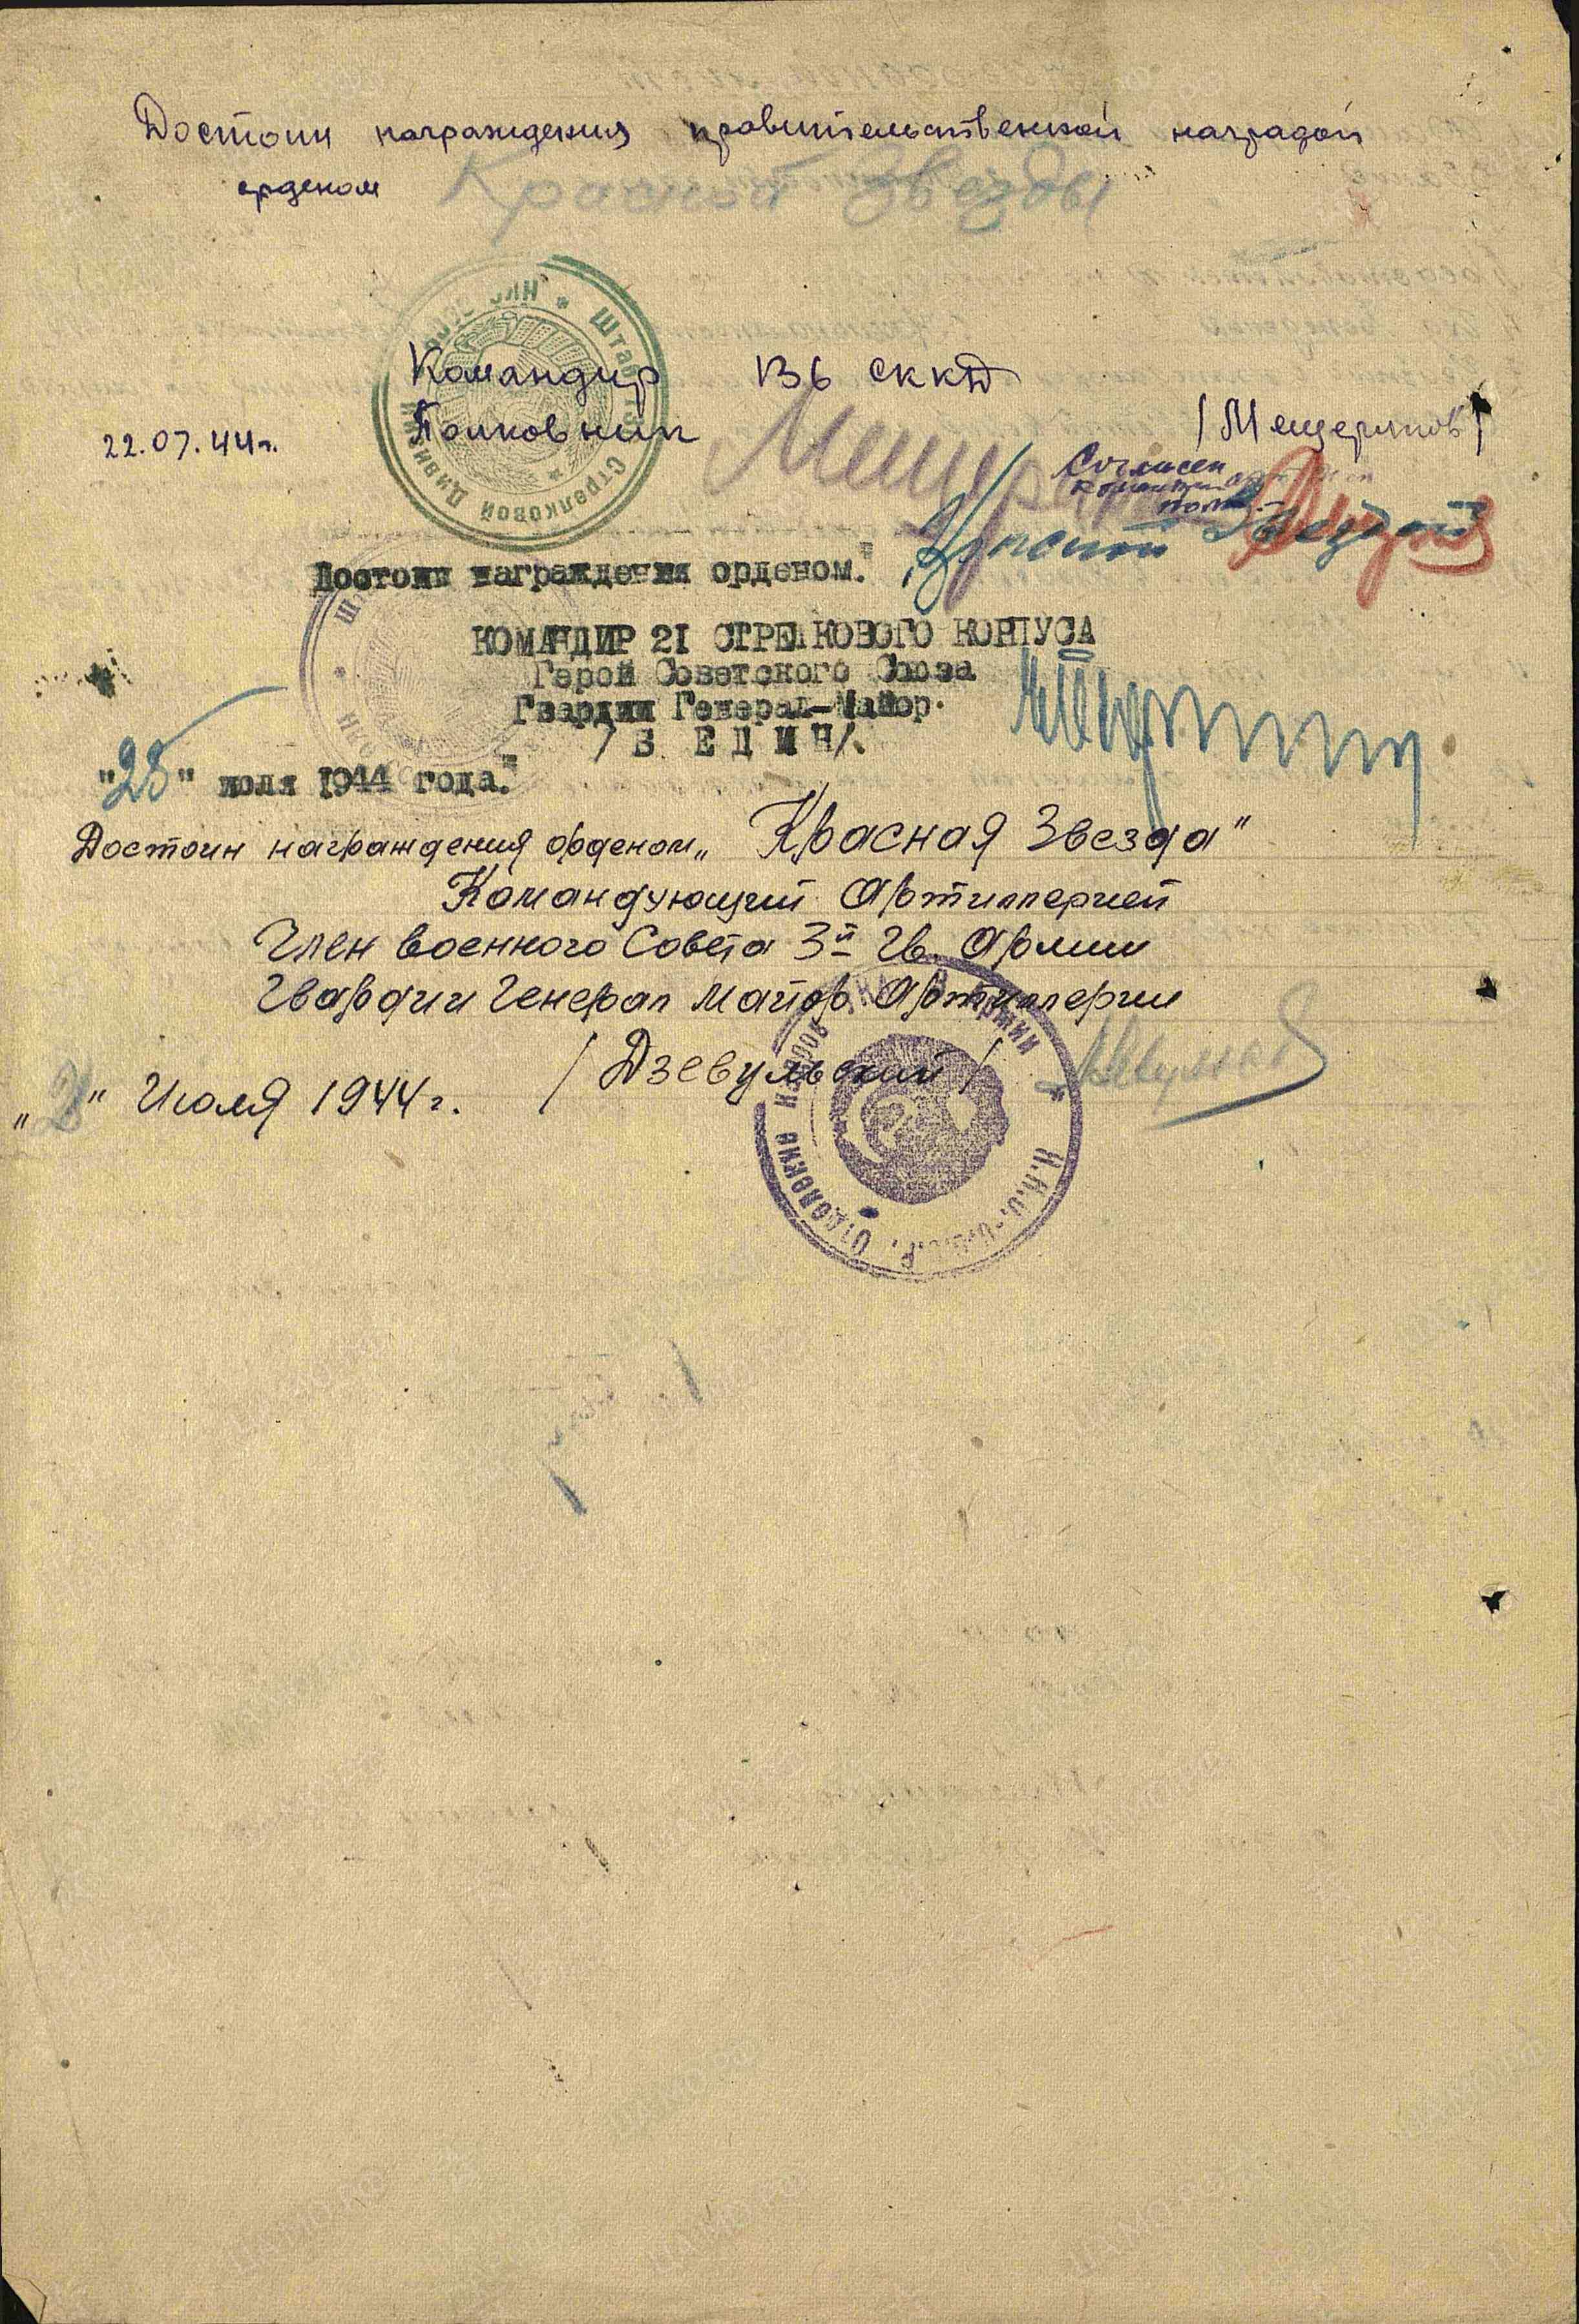 Достоин награждения правительственной наградой
орденом Красной Звезды
Командир 136 сккд
22.07.44г. Полковник /Мещеряков/
Согласен
Красной Звездой
Достоин награждения орденом."
КОМАНДИР 21 СТРЕЛКОВОГО КОРПУСА
Герой Советского Союза
Гвардии Генерал-Майор.
/В Е Д И Н/.
"25" июля 1944 года."
Достоин награждения орденом „Красная Звезда"
Командующий Артиллерией
Член Военного Совета 3й Гв. Армии
Гвардии Генерал Майор Артиллерии
/Дзевульский/
" Июля 1944г.
Штаб Стрелковой Дивизии
Н.К.О.-С.С.С.Р. Отделение кадров Армии